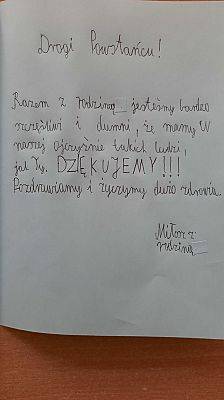 Drogi Powstańcu!
Razem z rodziną jesteśmy bardzo
szczęśliwi i dumni, że mamy w
naszej ojczyźnie takich ludzi,
jak Ty. DZIĘKUJEMY!!!
Pozdrawiamy i życzymy dużo zdrowia.
Miłosz z
rodziną